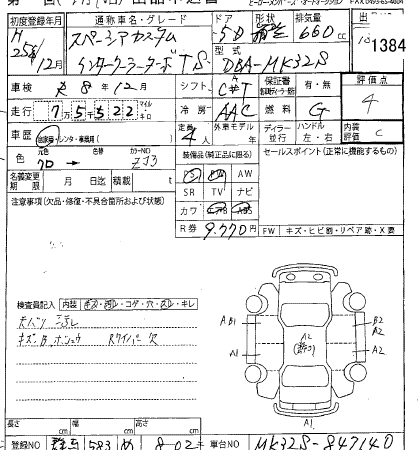 初度登録年月 通称車名・グレード ドア 形状 排気量 出品
H25年12月 スペーシアカスタム 5D 660cc 1384
インタークーラーターボTS 型式 DBA-MK32S
車検 8年12月 シフト CAT 保証書 有・無 評価点 4
走行 7万5千522 マイル キロ 冷房 AAC 燃料 G
車歴 自家用・レンタ・事業用 定員 4人 外車モデル年 ディーラー 並行 ハンドル 左・右 内装評価 C
色 元色 クロ → 色替 カラーNO ZJ3 装備品(純正品に限る) セールスポイント(正常に機能するもの)
名義変更期限 月 日迄 積載 t PS PW AW
SR TV ナビ
注意事項(欠品・修復・不具合箇所および状態) カワ エアB ABS
R券 9,770円 FW キズ・ヒビ割・リペア跡・X要
検査員記入 内装 キズ・汚れ・コゲ・穴・スレ・キレ
天バリ 汚れ
キズ、凹 Rワイパー欠
A B1 B2
A2
A1 A2
A1
長さ cm 幅 cm 高さ cm
登録NO 群馬 583 め 802 車台NO MK32S-847140